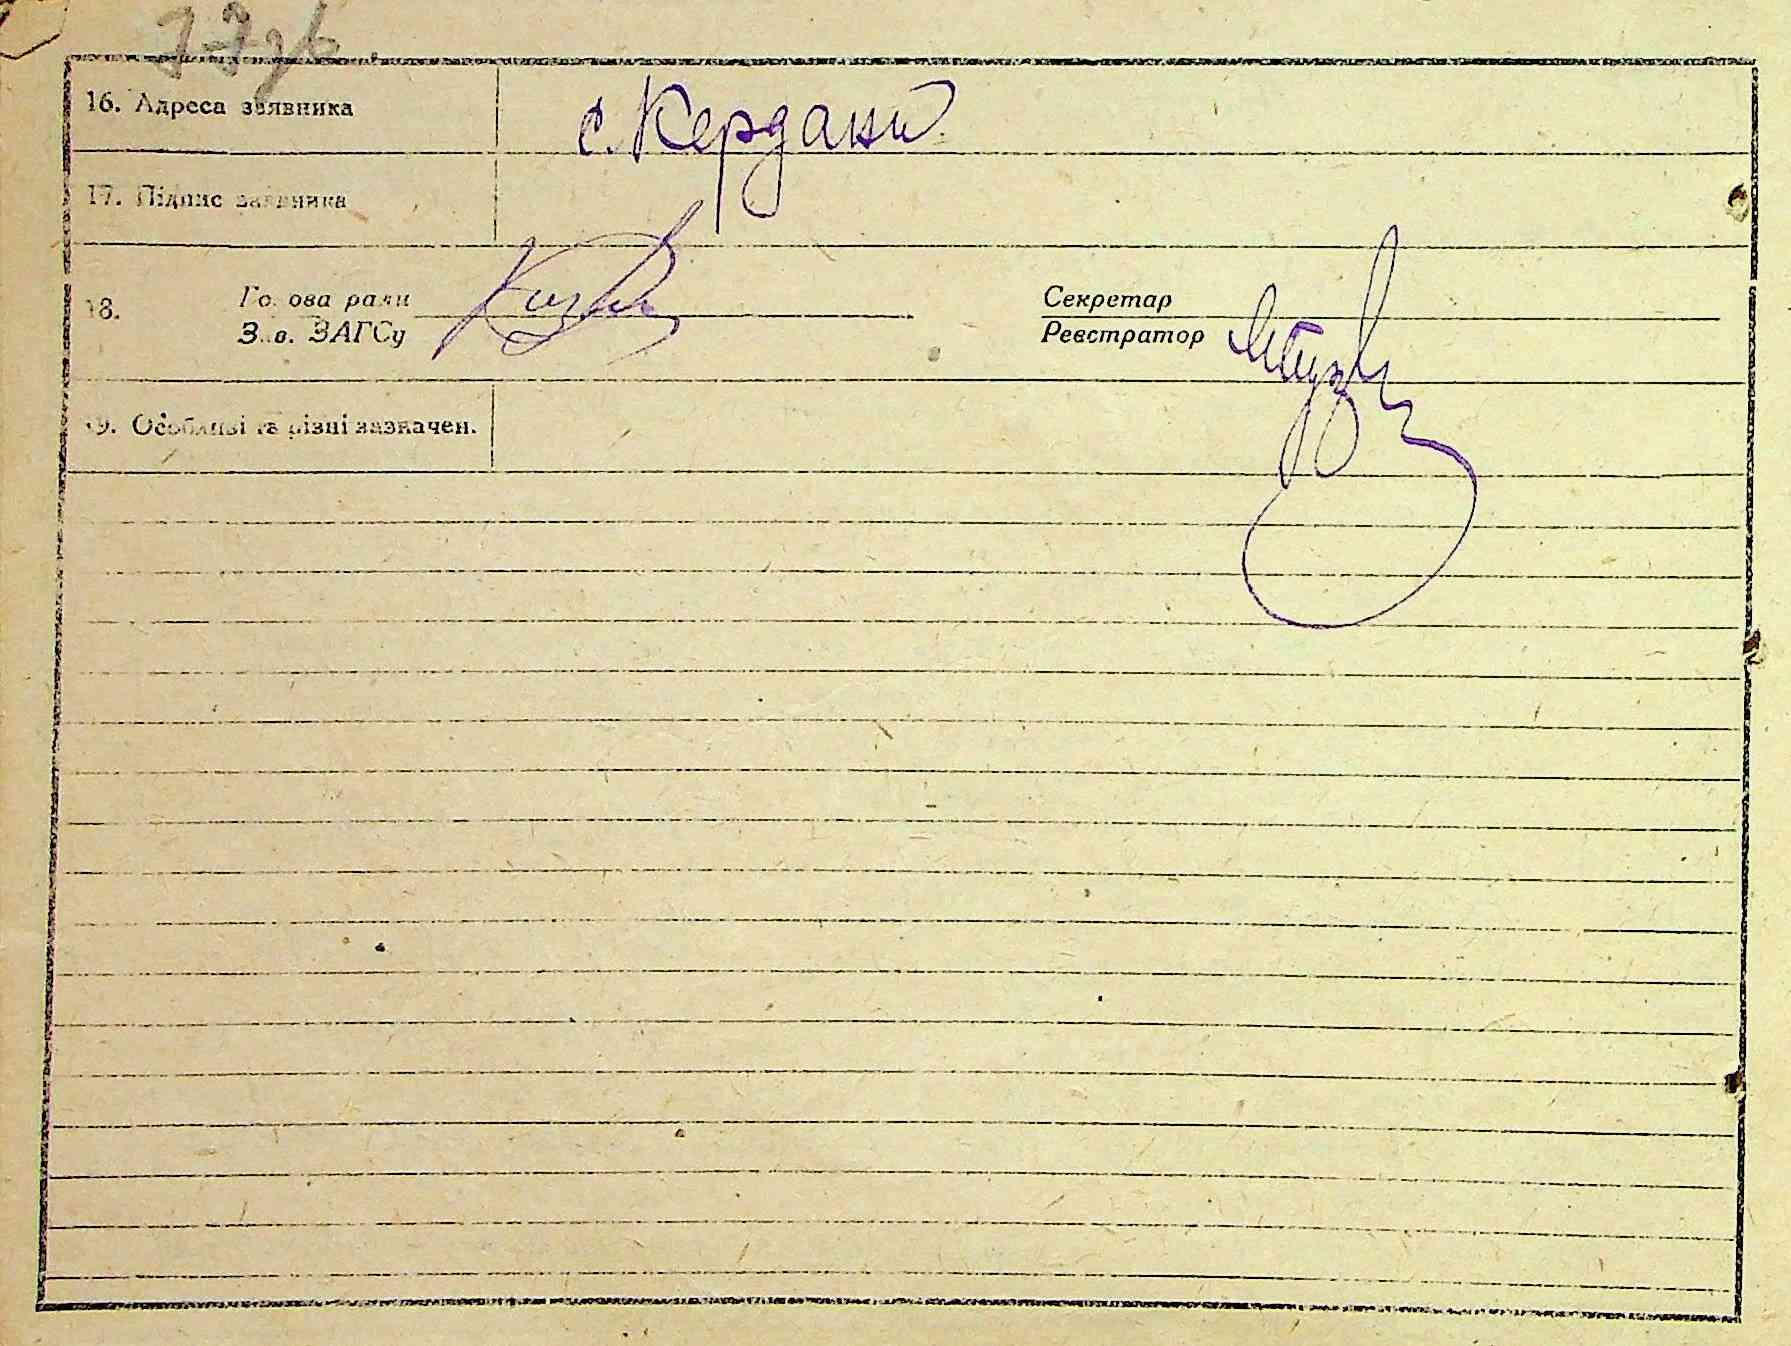 16. Адреса заявника
с. Кердани
17. Підпис заявника
18. Голова ради
Зав. ЗАГСу
Секретар
Реєстратор
19. Особливі та різні зазначен.